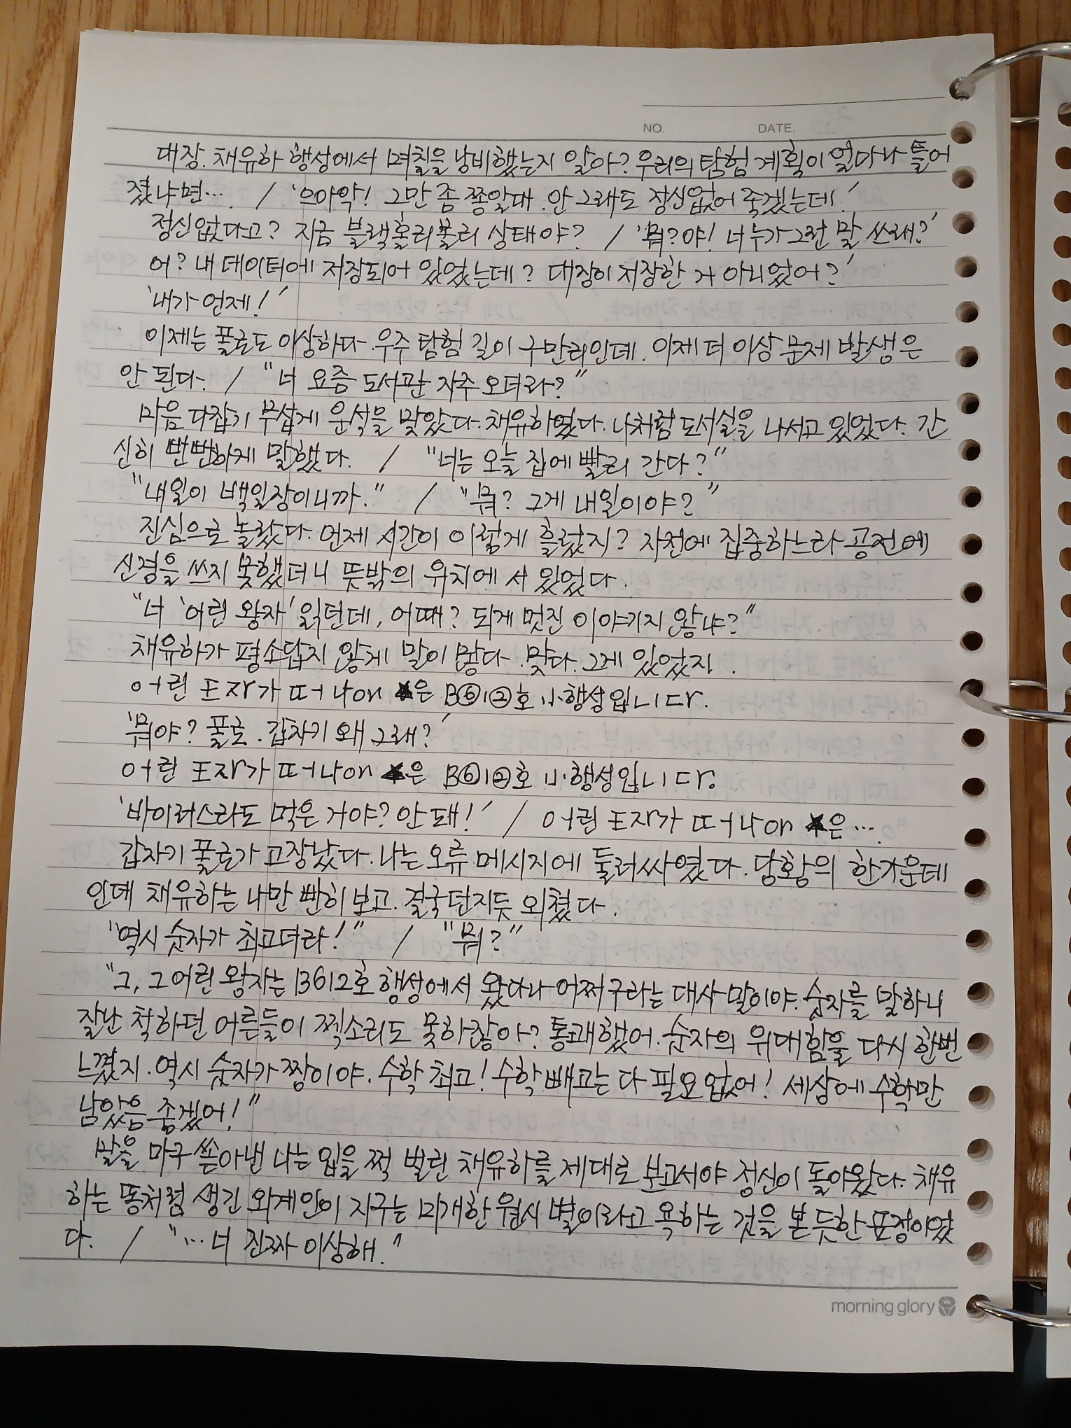 NO. DATE.
대장. 채유하 행성에서 며칠을 낭비했는지 알아? 우리의 탐험 계획이 얼마나 틀어
졌냐면…. / '으아악! 그만 좀 쫑알대. 안 그래도 정신없어 죽겠는데'
정신없다고? 지금 블랙홀리볼리 상태야? / '뭐? 야! 너 누가 그런 말 쓰래?'
어? 내 데이터에 저장되어 있었는데? 대장이 저장한 거 아니었어?'
'내가 언제!'
이제는 풀로도 이상하다. 우주 탐험 길이 구만리인데. 이제 더 이상 문제 발생은
안 된다. / "너 요즘 도서관 자주 오더라?"
마음 다잡기 무섭게 운석을 맞았다. 채유하였다. 나처럼 도서실을 나서고 있었다. 간
신히 뻔뻔하게 말했다. / "너는 오늘 집에 빨리 간다?"
"내일이 백일장이니까." / "뭐? 그게 내일이야?"
진심으로 놀랐다. 언제 시간이 이렇게 흘렀지? 자전에 집중하느라 공전에
신경을 쓰지 못했더니 뜻밖의 위치에 서 있었다.
"너 '어린 왕자' 읽던데, 어때? 되게 멋진 이야기지 않냐?"
채유하가 평소답지 않게 말이 많다. 맞다. 그게 있었지.
어린 ㅗ자r가 ㄸㅓ나on ★은 B⑥1②호 小행성입ㄴㅣ다r.
'뭐야? 풀로. 갑자기 왜 그래?'
어린 ㅗ자r가 ㄸㅓ나on ★은 B⑥1②호 小행성입ㄴㅣ다r.
'바이러스라도 먹은 거야? 안 돼!' / 어린 ㅗ자r가 ㄸㅓ나on ★은…
갑자기 풀로가 고장났다. 나는 오류 메시지에 둘러싸였다. 당황의 한가운데
인데 채유하는 나만 빤히 보고. 결국 던지듯 외쳤다.
"역시 숫자가 최고더라!" / "뭐?"
"그, 그 어린 왕자는 B612호 행성에서 왔다나 어쩌구라는 대사 말이야. 숫자를 말하니
잘난 척하던 어른들이 찍소리도 못하잖아? 통쾌했어. 숫자의 위대함을 다시 한번
느꼈지. 역시 숫자가 짱이야. 수학 최고! 수학 빼고는 다 필요 없어! 세상에 수학만
남았음 좋겠어!"
말을 마구 쏟아낸 나는 입을 쩍 벌린 채유하를 제대로 보고서야 정신이 돌아왔다. 채유
하는 똥처럼 생긴 외계인이 지구는 미개한 원시 별이라고 욕하는 것을 본 듯한 표정이었
다. / "…너 진짜 이상해."
morning glory